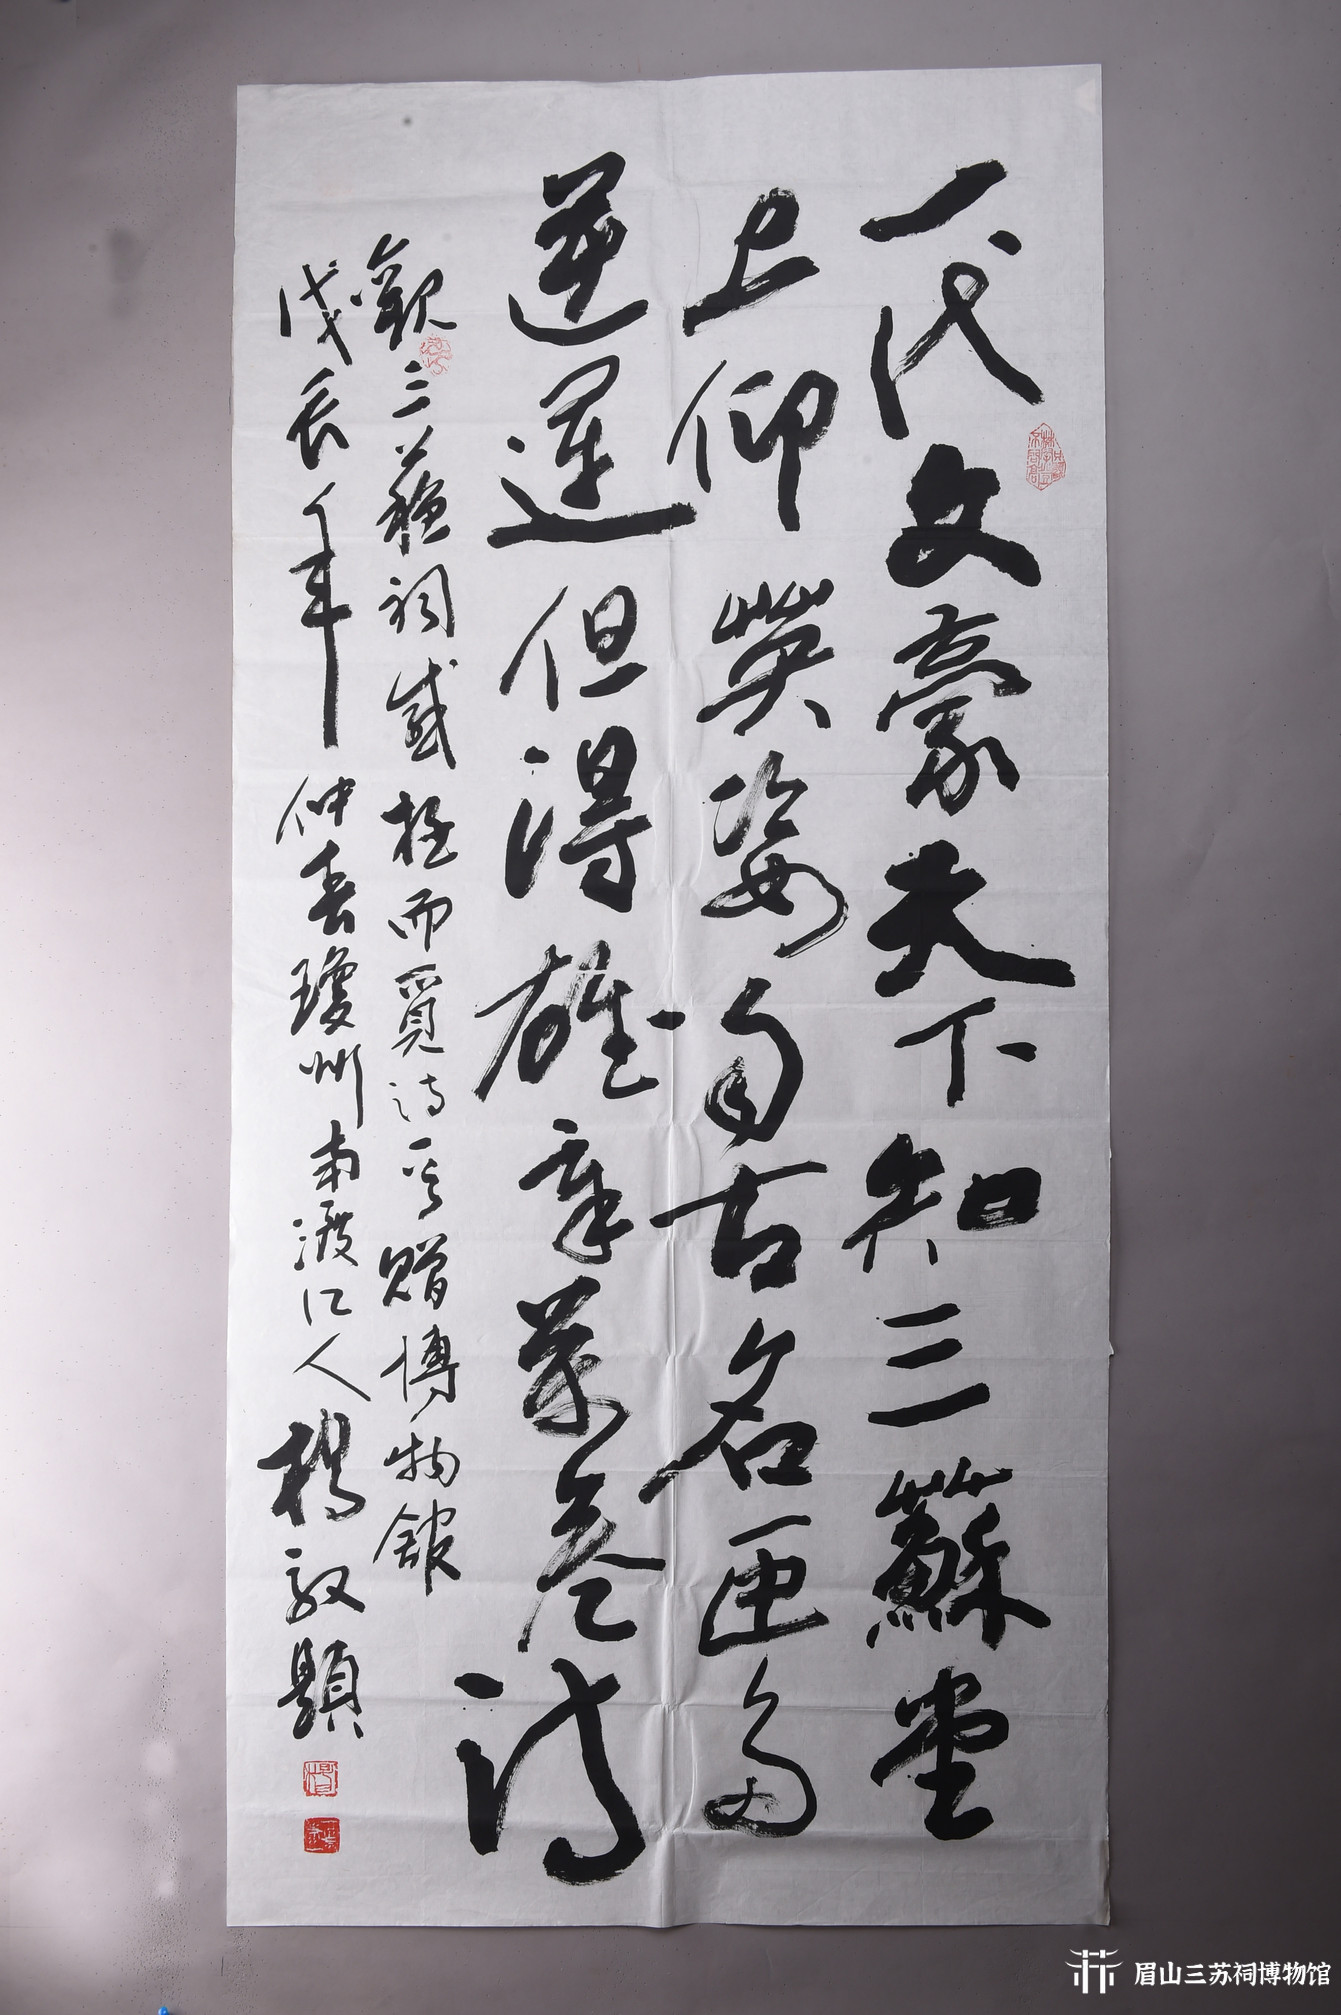 一代文豪天下知三蘇堂
上仰英姿自古名匠多
逆運但得雄章萬卷诗
觀三蘇祠感極而覓诗一首贈博物館
戊辰年仲春瓊州南渡江人楊題
眉山三苏祠博物馆